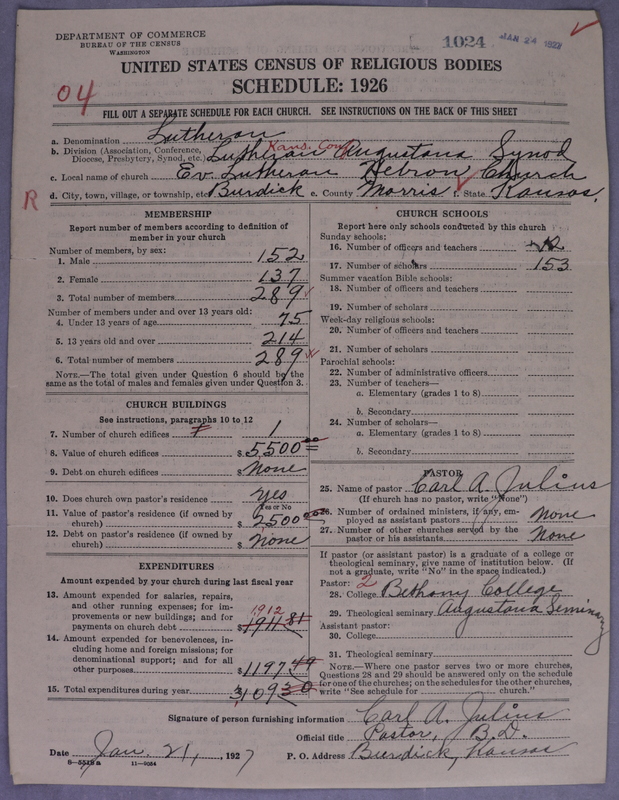 DEPARTMENT OF COMMERCE
BUREAU OF THE CENSUS
WASHINGTON
1024
JAN 24 1927
UNITED STATES CENSUS OF RELIGIOUS BODIES
SCHEDULE: 1926
04
FILL OUT A SEPARATE SCHEDULE FOR EACH CHURCH. SEE INSTRUCTIONS ON THE BACK OF THIS SHEET
a. Denomination Lutheran
b. Division (Association, Conference, Diocese, Presbytery, Synod, etc.) Lutheran Kans. Conf. Augustana Synod
c. Local name of church Ev. Lutheran Hebron Church
R
d. City, town, village, or township, etc Burdick e. County Morris f. State Kansas.
MEMBERSHIP
Report number of members according to definition of member in your church
Number of members, by sex:
1. Male 152
2. Female 137
3. Total number of members 289
Number of members under and over 13 years old:
4. Under 13 years of age 75
5. 13 years old and over 214
6. Total number of members 289
NOTE.—The total given under Question 6 should be the same as the total of males and females given under Question 3.
CHURCH BUILDINGS
See instructions, paragraphs 10 to 12
7. Number of church edifices 1
8. Value of church edifices $5500.00
9. Debt on church edifices $None
10. Does church own pastor's residence Yes
Yes or No
11. Value of pastor's residence (if owned by church) $2500.00
12. Debt on pastor's residence (if owned by church) $None
EXPENDITURES
Amount expended by your church during last fiscal year
13. Amount expended for salaries, repairs, and other running expenses; for improvements or new buildings; and for payments on church debt 1912 $1911.81
14. Amount expended for benevolences, including home and foreign missions; for denominational support; and for all other purposes $1197.49
15. Total expenditures during year $3109.30
CHURCH SCHOOLS
Report here only schools conducted by this church
Sunday schools:
16. Number of officers and teachers 12
17. Number of scholars 153
Summer vacation Bible schools:
18. Number of officers and teachers
19. Number of scholars
Week-day religious schools:
20. Number of officers and teachers
21. Number of scholars
Parochial schools:
22. Number of administrative officers
23. Number of teachers—
a. Elementary (grades 1 to 8)
b. Secondary
24. Number of scholars—
a. Elementary (grades 1 to 8)
b. Secondary
PASTOR
25. Name of pastor Carl A. Julius
(If church has no pastor, write "None")
26. Number of ordained ministers, if any, employed as assistant pastors None
27. Number of other churches served by the pastor or his assistants None
If pastor (or assistant pastor) is a graduate of a college or theological seminary, give name of institution below. (If not a graduate, write "No" in the space indicated.)
Pastor: 2
28. College Bethany College
29. Theological seminary Augustana Seminary
Assistant pastor:
30. College
31. Theological seminary
NOTE.—Where one pastor serves two or more churches, Questions 28 and 29 should be answered only on the schedule for one of the churches; on the schedules for the other churches, write "See schedule for church."
Signature of person furnishing information Carl A. Julius
Official title Pastor, B.D.
Date Jan. 21, 1927 P. O. Address Burdick, Kansas
8—5518a 11—9054